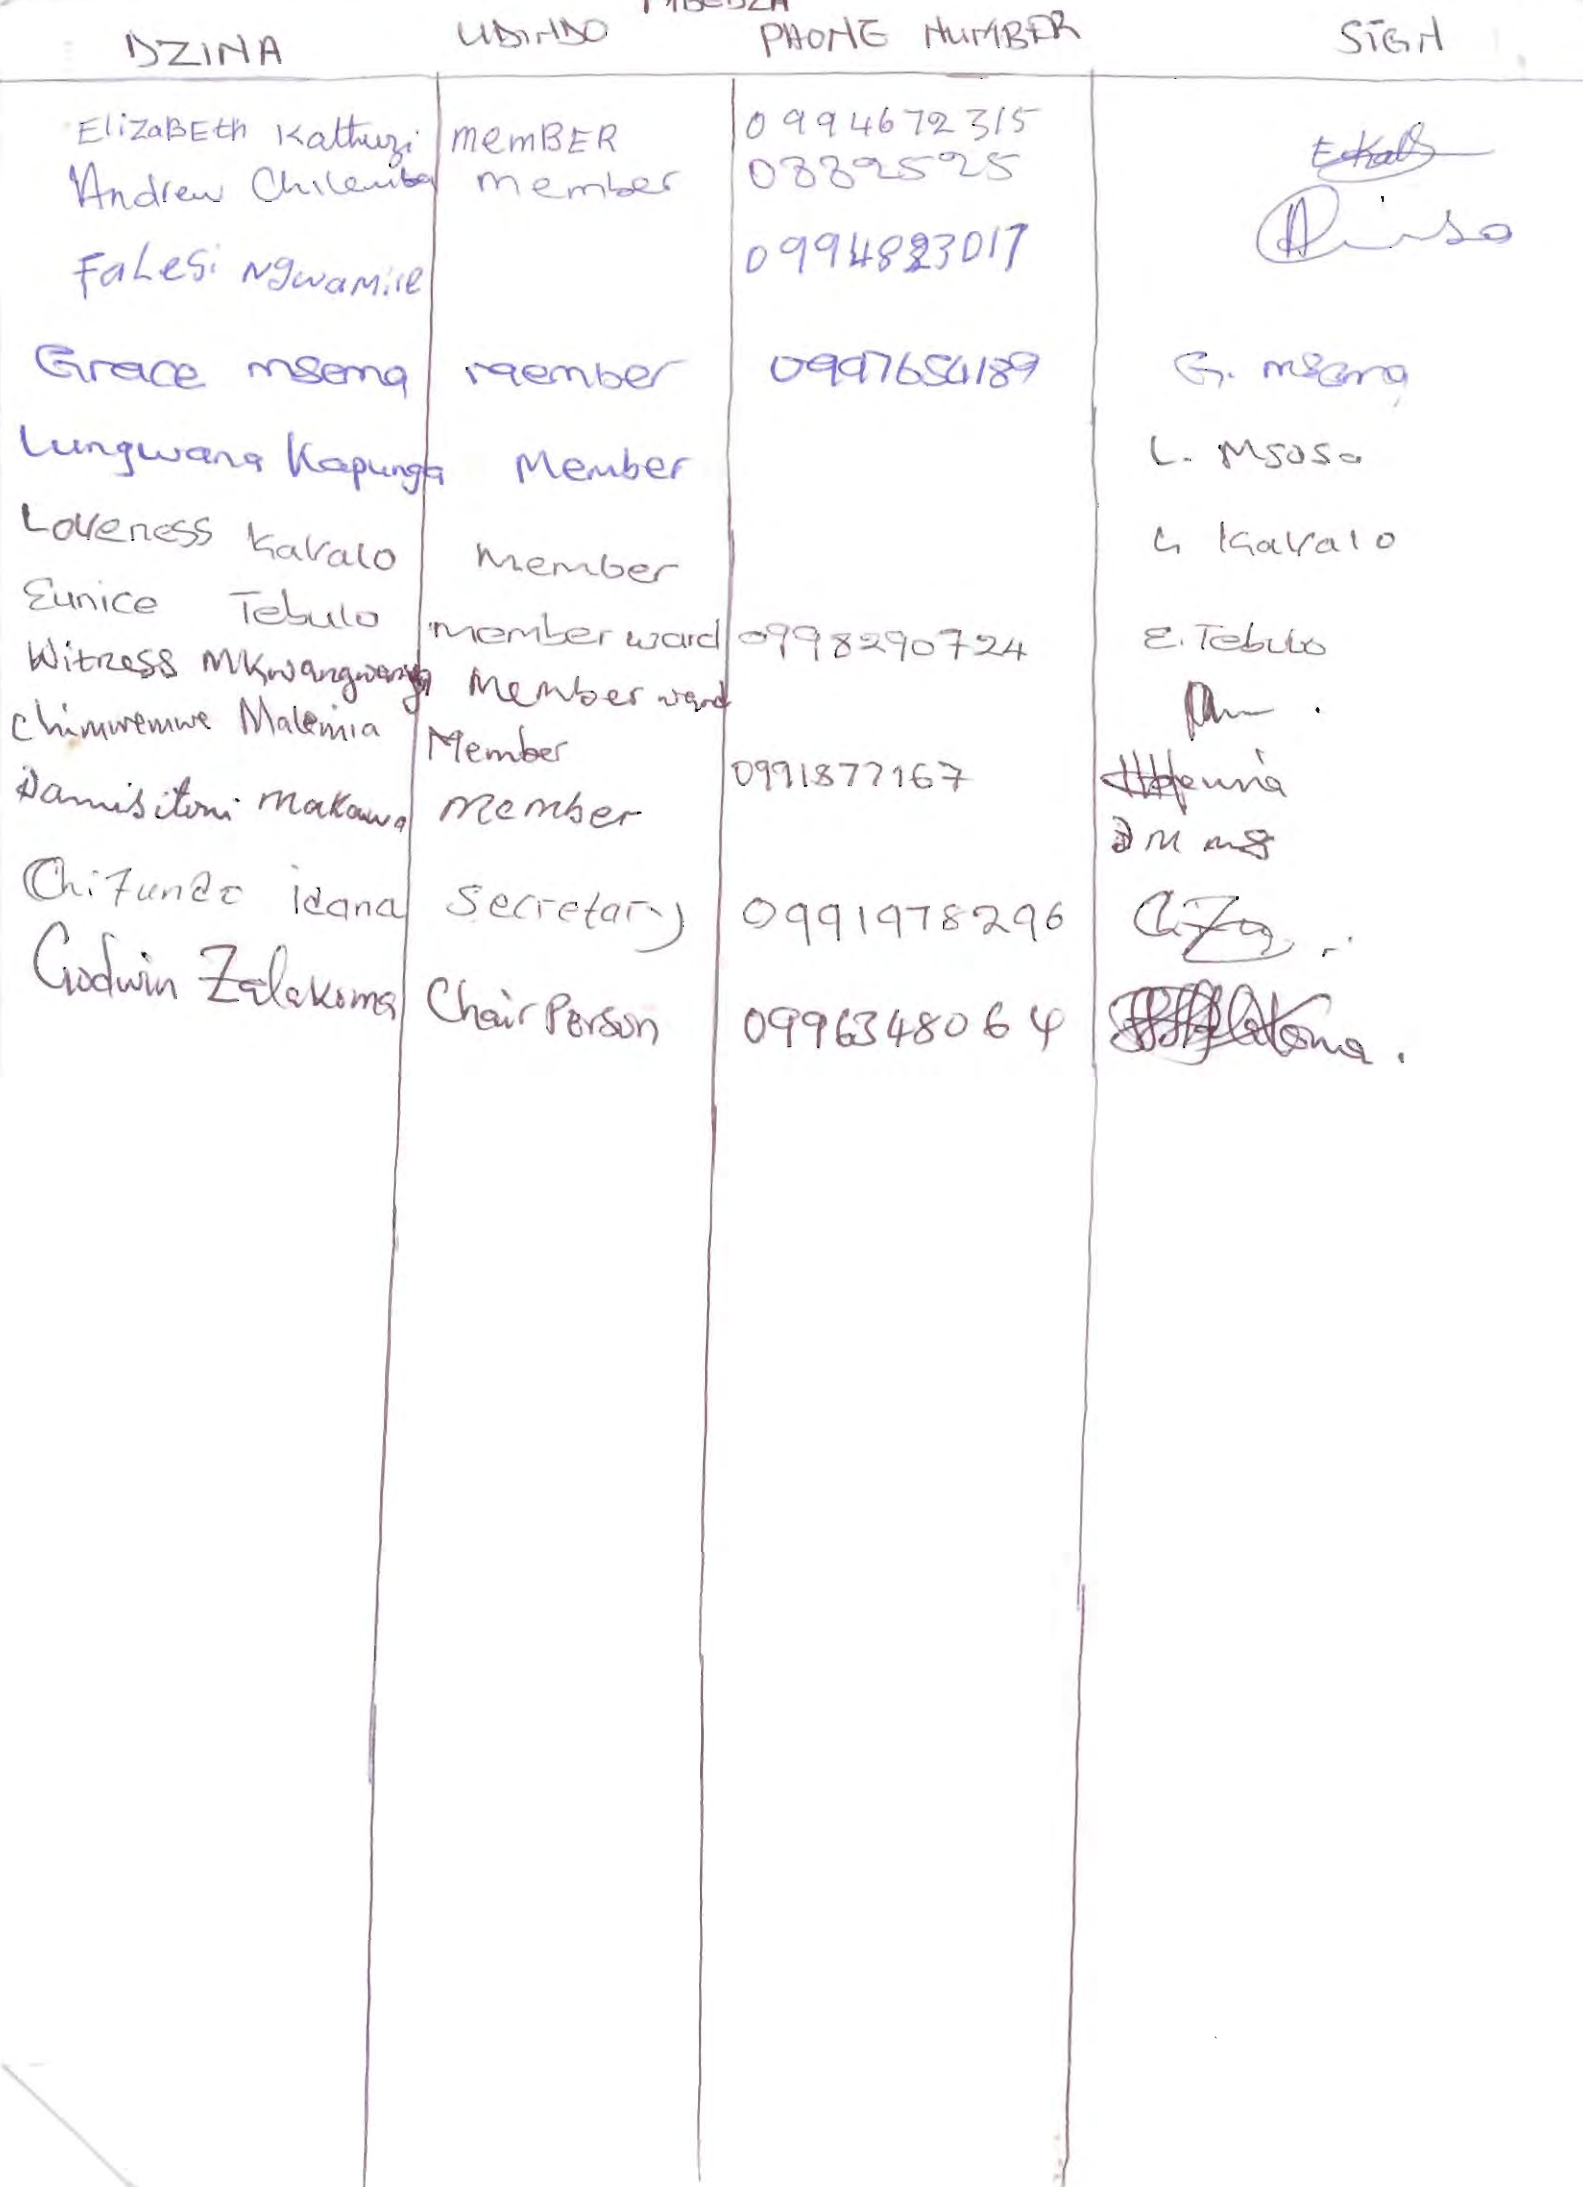 DZINA UDINDO PHONE NUMBER SIGN
ElizaBEth Kathuzi memBER 0994672315
Andrew Chilemba member 08882525
FaLesi Ngwamire 0994823017
Grace msema member 0997654189 G. msema
Lungwana Kapunga Member L. Msosa
Loveness Kavalo Member L Kavalo
Eunice Tebulo member ward 0998290724 E. Tebulo
Witness Mkwangwanya Member ward
Chimwemwe Malemia Member 0991877167
Damisitoni Makawa Member
Chifundo idana Secretary 0991978296
Godwin Zalakoma Chair Person 0996348064